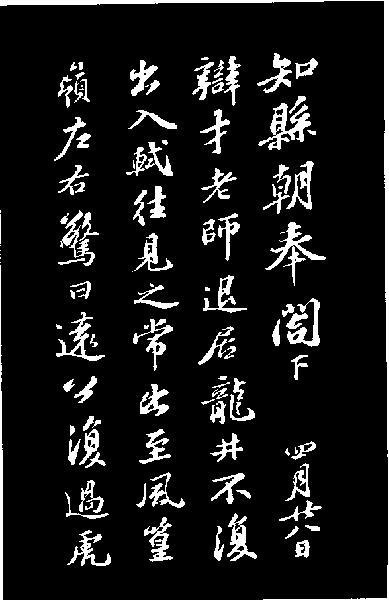 知縣朝奉閤下 四月廿八日
辯才老師退居龍井不復
出入軾往見之常出至風篁
嶺左右驚曰遠公復過虎